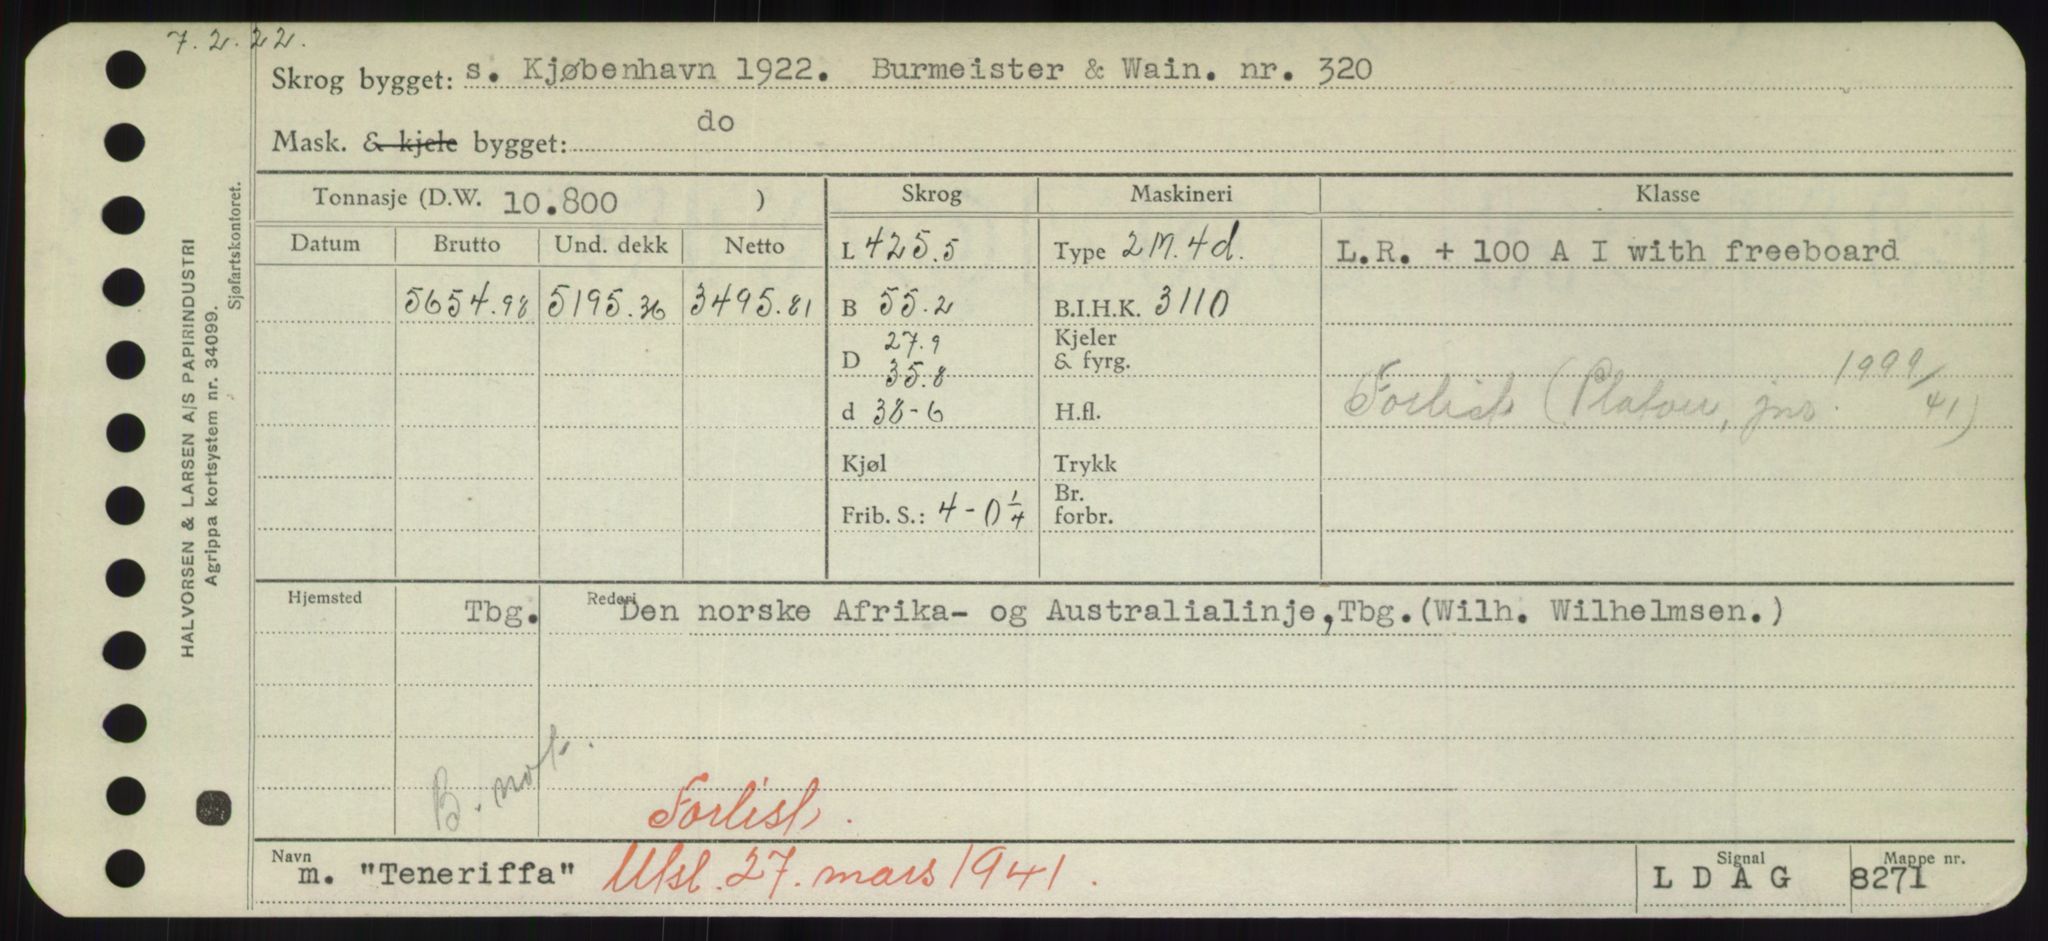 7.2.22.
Skrog bygget: s. Kjøbenhavn 1922. Burmeister & Wain. nr. 320
Mask. & kjele bygget: do
HALVORSEN & LARSEN A/S PAPIRINDUSTRI
Agrippa kortsystem nr. 34099.
Sjøfartskontoret.
Tonnasje (D.W. 10.800 ) Skrog Maskineri Klasse
Datum Brutto Und. dekk Netto L 425.5 Type 2 M. 4d. L.R. + 100 A I with freeboard
5654.98 5195.36 3495.81 B 55.2 B.I.H.K. 3110
D 27.9 Kjeler
35.8 & fyrg.
1999/41
d 38-6 H.fl. Forlist ( jnr. )
Kjøl Trykk
Frib. S.: 4-0 1/4 Br.
forbr.
Hjemsted Tbg. Rederi Den norske Afrika- og Australialinje,Tbg.(Wilh. Wilhelmsen.)
B. not.
Forlist.
Navn m. "Teneriffa" Utsl. 27. mars 1941. Signal L D A G Mappe nr. 8271